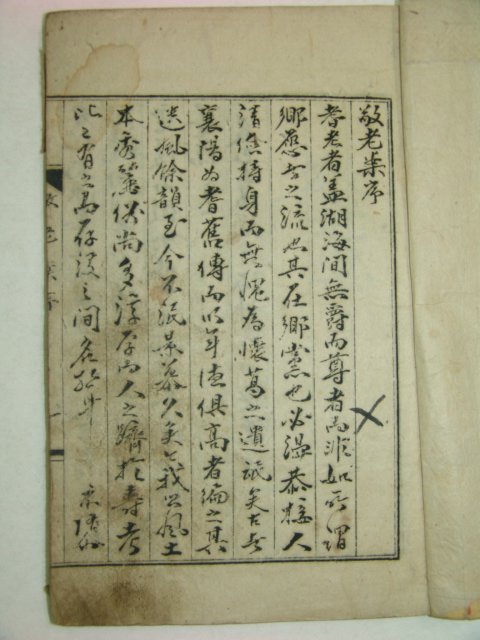 敬老案序
耆老者盖湖海間無爵而尊者而非如所謂
鄉愿者之流也其在鄉黨也必温恭接人
清儉持身而無愧為懷葛之遺氓矣古者
襄陽爲耆舊傳而以年德俱高者編之其
遺風餘韻至今不泯景慕久矣我公風土
本秀麗俗尚多淳厚而人之躋於壽考
比比有之島存沒之間名
敬老案序
一